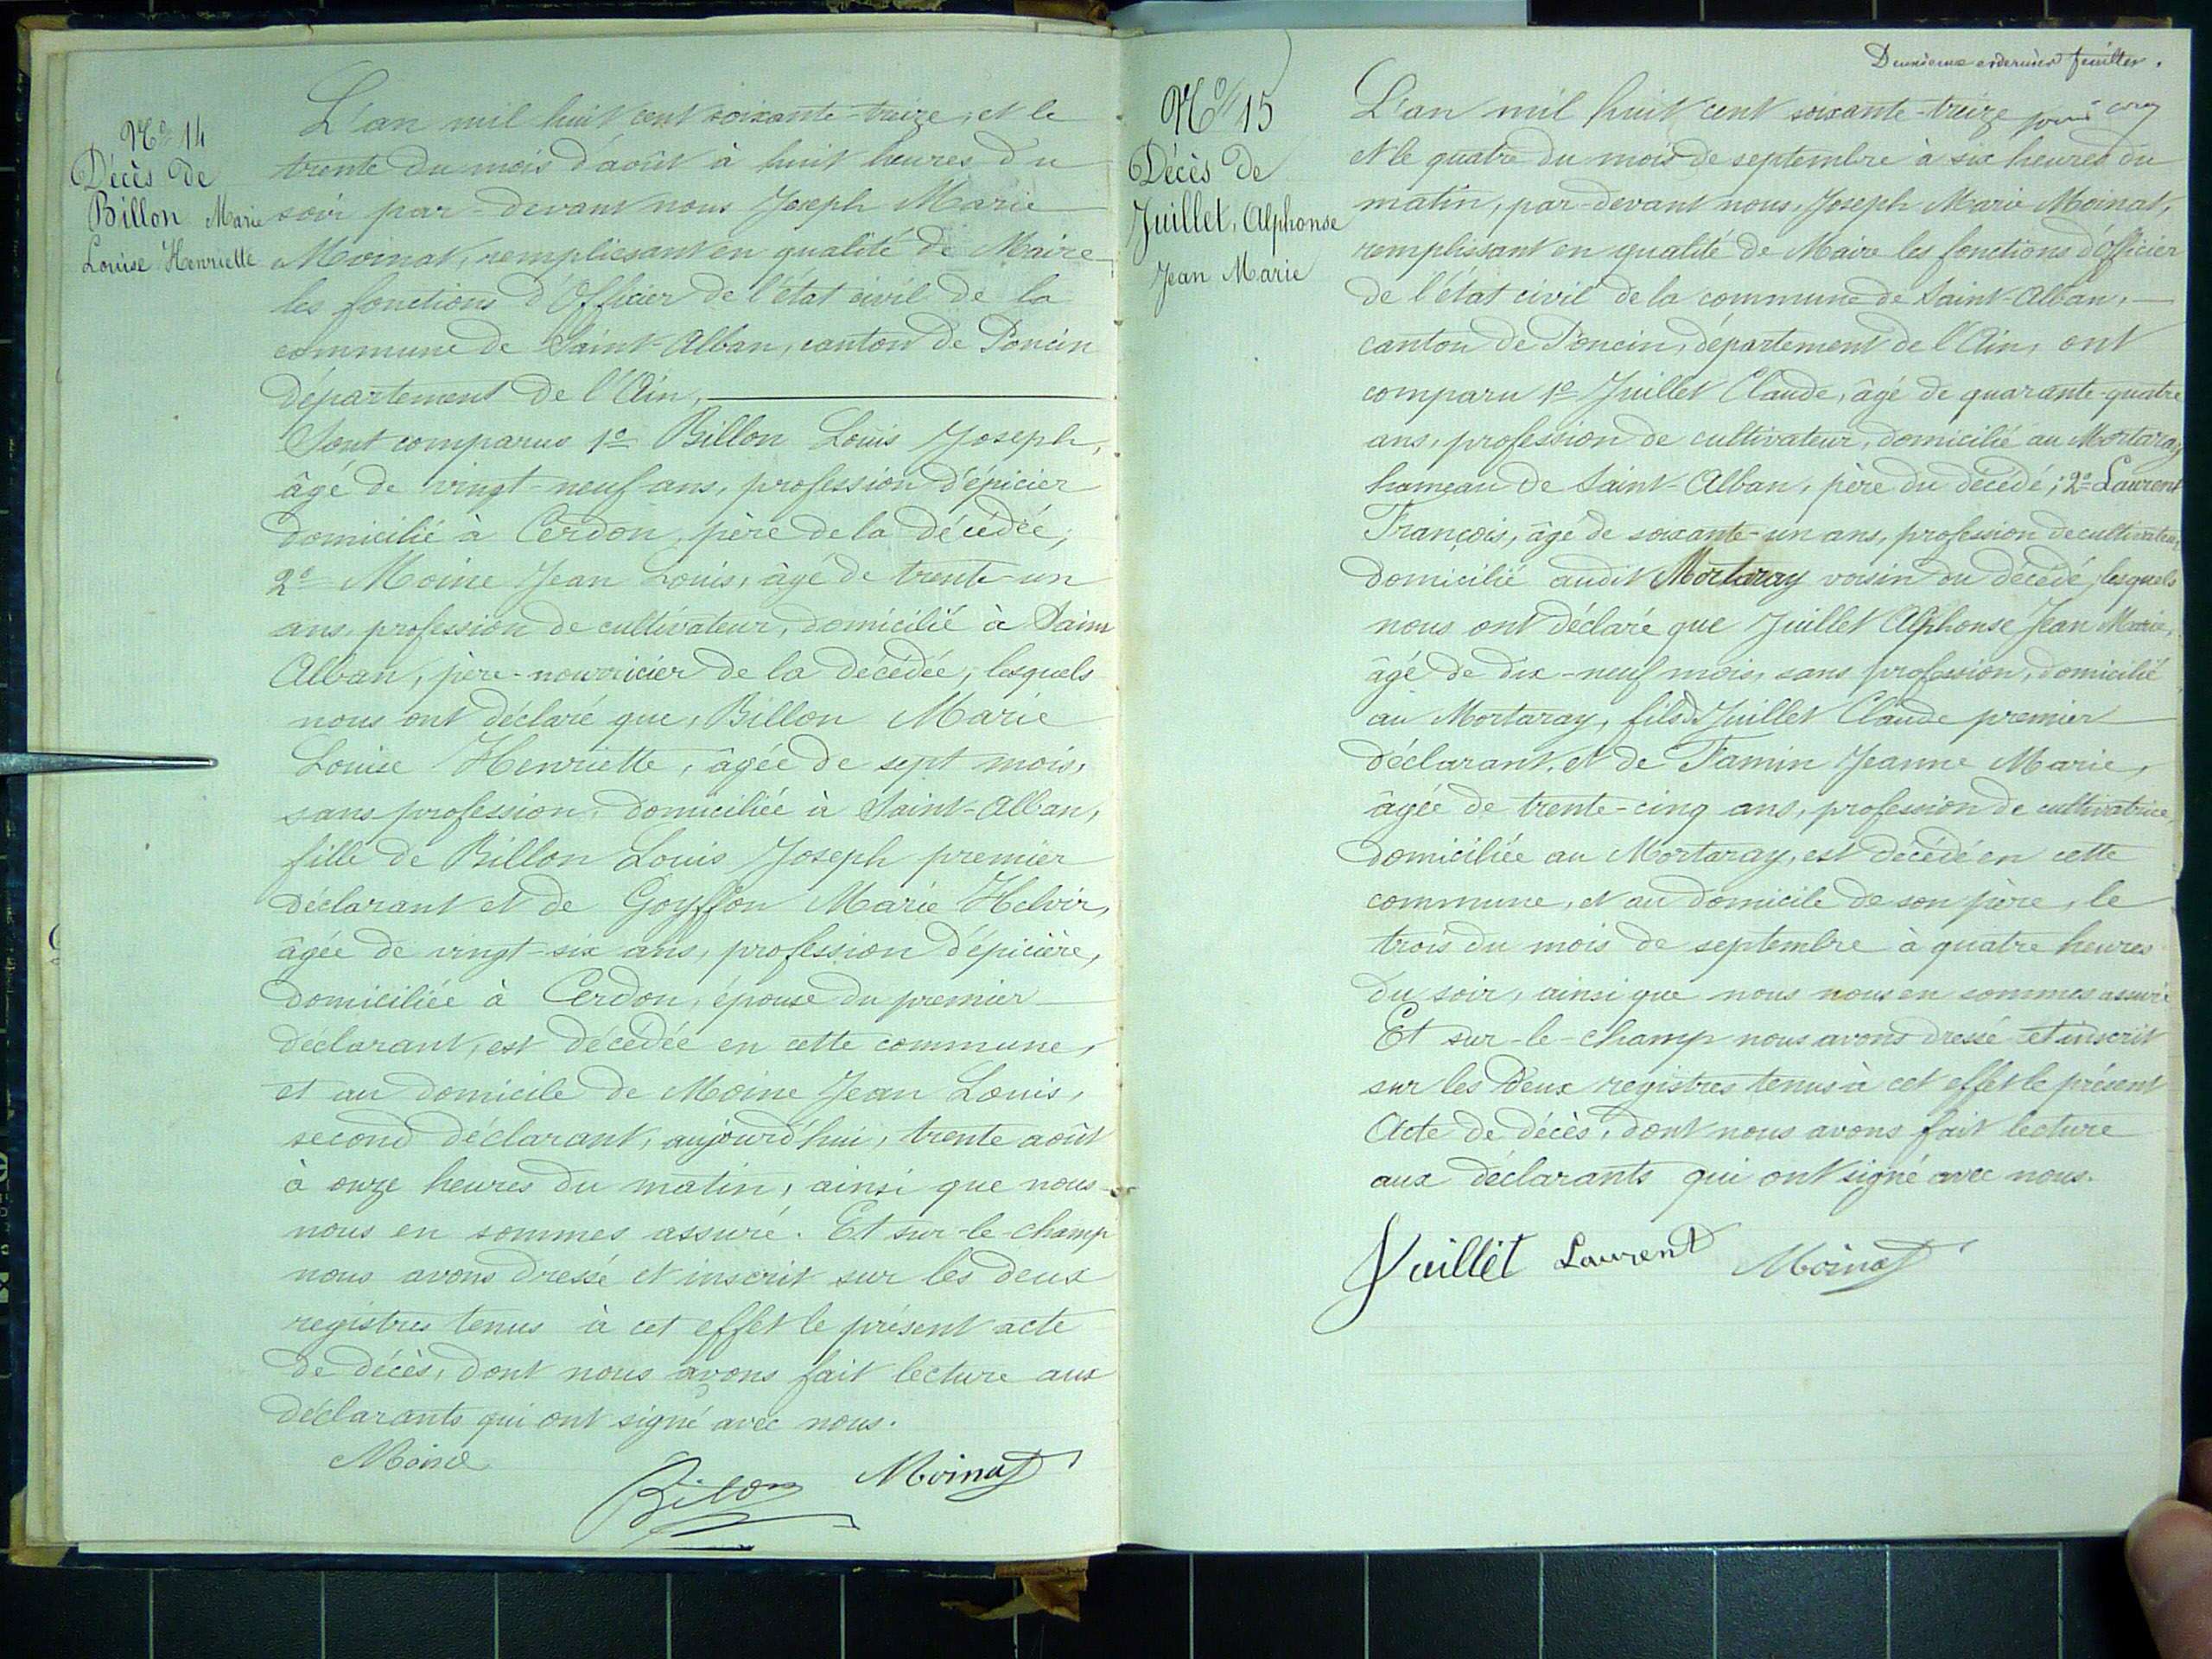 N° 14
Décès de
Billon Marie
Louise Henriette
L'an mil huit cent soixante-treize, et le
trente du mois d'août à huit heures du
soir par-devant nous Joseph Marie
Moinat, remplissant en qualité de Maire
les fonctions d'Officier de l'état civil de la
commune de Saint-Alban, canton de Poncin
département de l'Ain,
Sont comparus 1° Billon Louis Joseph,
âgé de vingt-neuf ans, profession d'épicier
domicilié à Cerdon, père de la décédée;
2° Moine Jean Louis, âgé de trente-un
ans, profession de cultivateur, domicilié à Saint
Alban, père-nourricier de la décédée, lesquels
nous ont déclaré que, Billon Marie
Louise Henriette, âgée de sept mois,
sans profession, domiciliée à Saint-Alban,
fille de Billon Louis Joseph premier
déclarant et de Goyffon Marie Helvir,
âgée de vingt-six ans, profession d'épicière,
domiciliée à Cerdon, épouse du premier
déclarant, est décédée en cette commune,
et au domicile de Moine Jean Louis,
second déclarant, aujourd'hui, trente août
à onze heures du matin, ainsi que nous
nous en sommes assuré. Et sur-le-champ
nous avons dressé et inscrit sur les deux
registres tenus à cet effet le présent acte
de décès, dont nous avons fait lecture aux
déclarants qui ont signé avec nous.
Moine
Billon Moinat
Deuxième et dernier feuillet.
N° 15
Décès de
Juillet, Alphonse
Jean Marie
L'an mil huit cent soixante-treize
et le quatre du mois de septembre à six heures du
matin, par-devant nous, Joseph Marie Moinat,
remplissant en qualité de Maire les fonctions d'Officier
de l'état civil de la commune de Saint-Alban,
canton de Poncin, département de l'Ain, ont
comparu 1° Juillet Claude, âgé de quarante-quatre
ans, profession de cultivateur, domicilié au Mortaray
hameau de Saint-Alban, père du décédé; 2° Laurent
François, âgé de soixante-un ans, profession de cultivateur,
domicilié audit Mortaray voisin du décédé, lesquels
nous ont déclaré que Juillet Alphonse Jean Marie,
âgé de dix-neuf mois, sans profession, domicilié
au Mortaray, fils de Juillet Claude premier
déclarant, et de Famin Jeanne Marie,
âgée de trente-cinq ans, profession de cultivatrice,
domiciliée au Mortaray, est décédé en cette
commune, et au domicile de son père, le
trois du mois de septembre à quatre heures
du soir, ainsi que nous nous en sommes assuré
Et sur-le-champ nous avons dressé et inscrit
sur les deux registres tenus à cet effet le présent
Acte de décès, dont nous avons fait lecture
aux déclarants qui ont signé avec nous.
Juillet Laurent Moinat